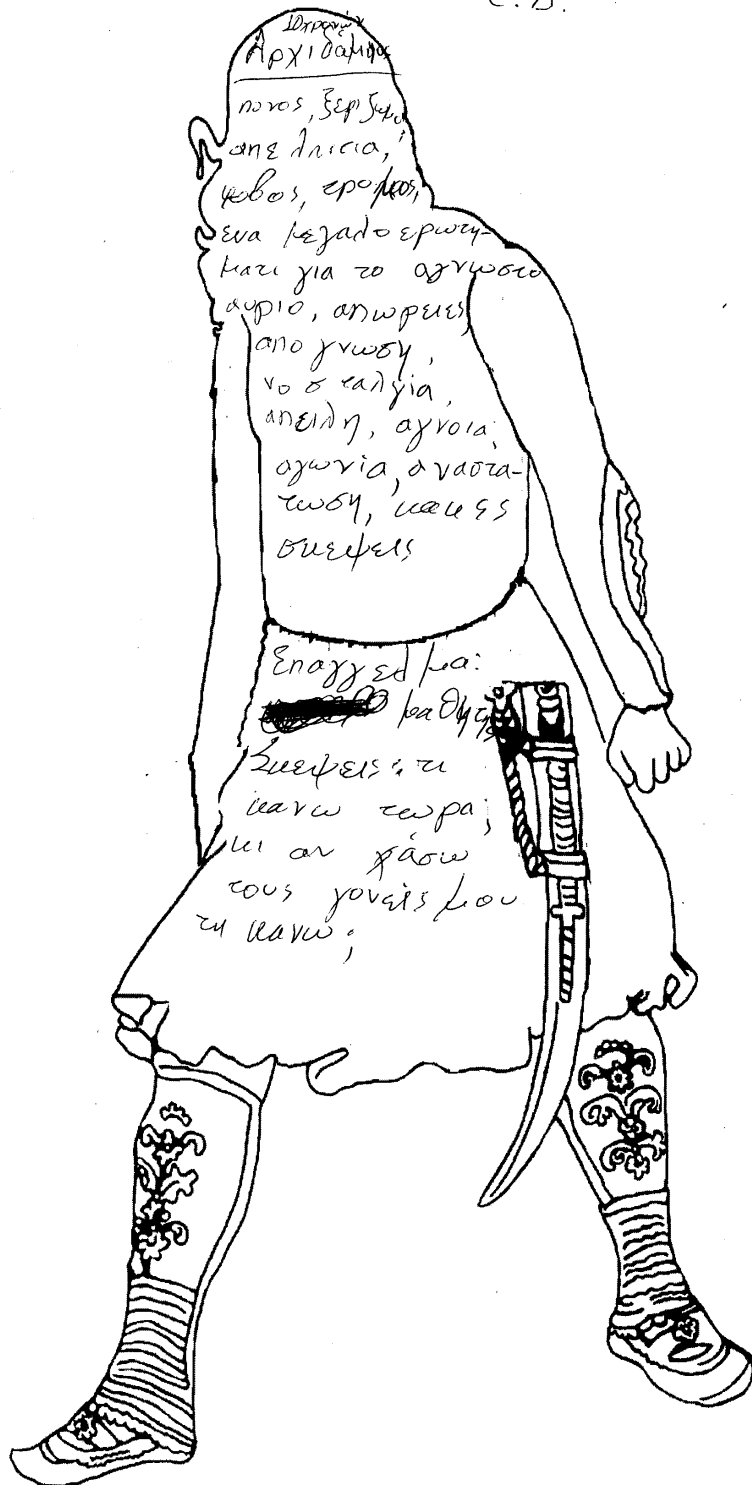 Ε.Β.
10χρονών
Αρχιδαμος
πονος, ξεριζωμο
απελπισια,
φοβος, τρομος,
ενα μεγαλο ερωτη-
ματι για το αγνωστο
αυριο, απωρειες
απογνωση,
νοσταλγία,
απειλη, αγνοια,
αγωνία, αναστα-
τωση, κακες
σκεψεις
Επαγγελμα:
μαθητης
Σκεψεις: τι
κανω τωρα;
κι αν χάσω
τους γονείς μου
τι κανω;